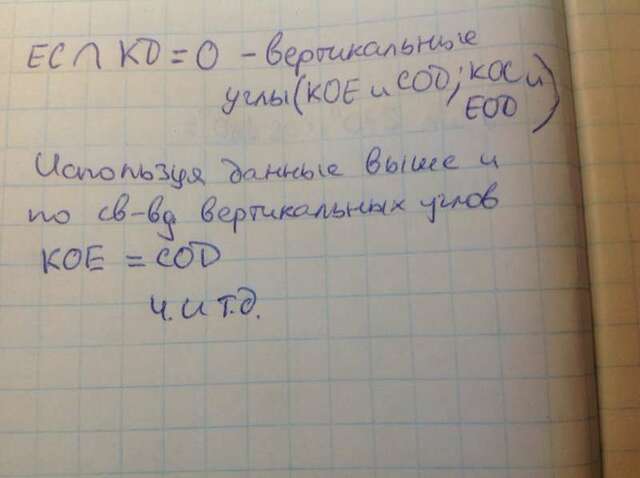 EC ∩ KD = O - вертикальные
углы (KOE и COD; KOC и
EOD)
Используя данные выше и
по св-ву вертикальных углов
KOE = COD
ч.и т.д.